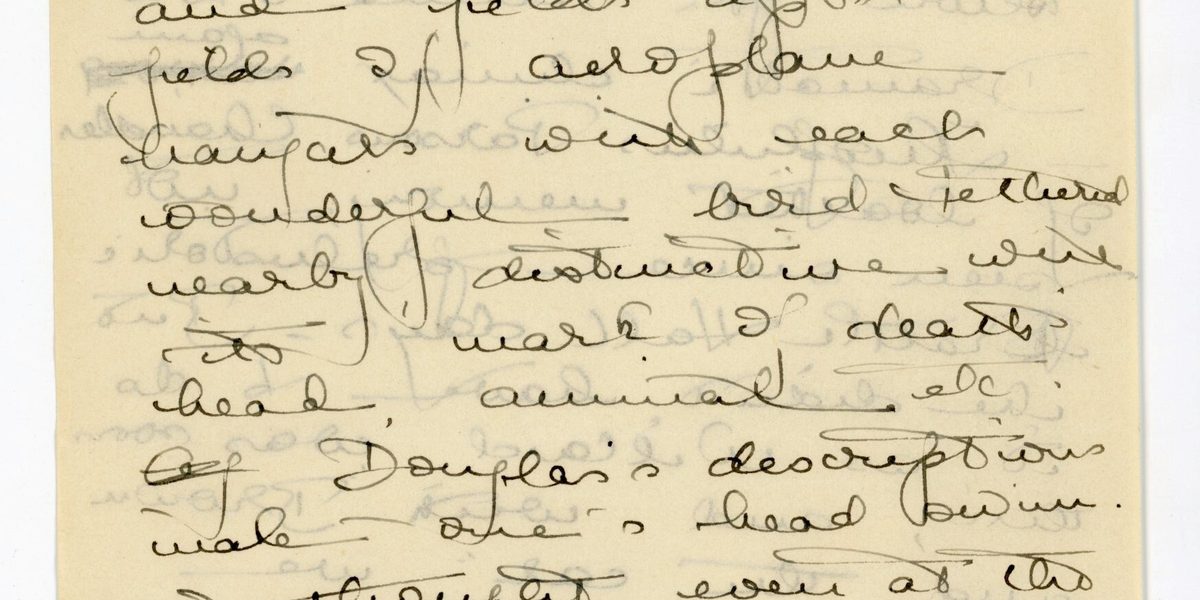 and fields after
fields of aeroplane
hangars with each
wonderful bird tethered
nearby distinctive with
its mark of death's
head, animal, etc
Douglas's descriptions
make one's head swim.
I thought even at the